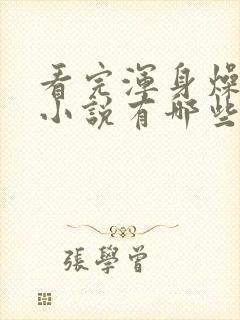 看完渾身燥
小説有哪些
張學曾